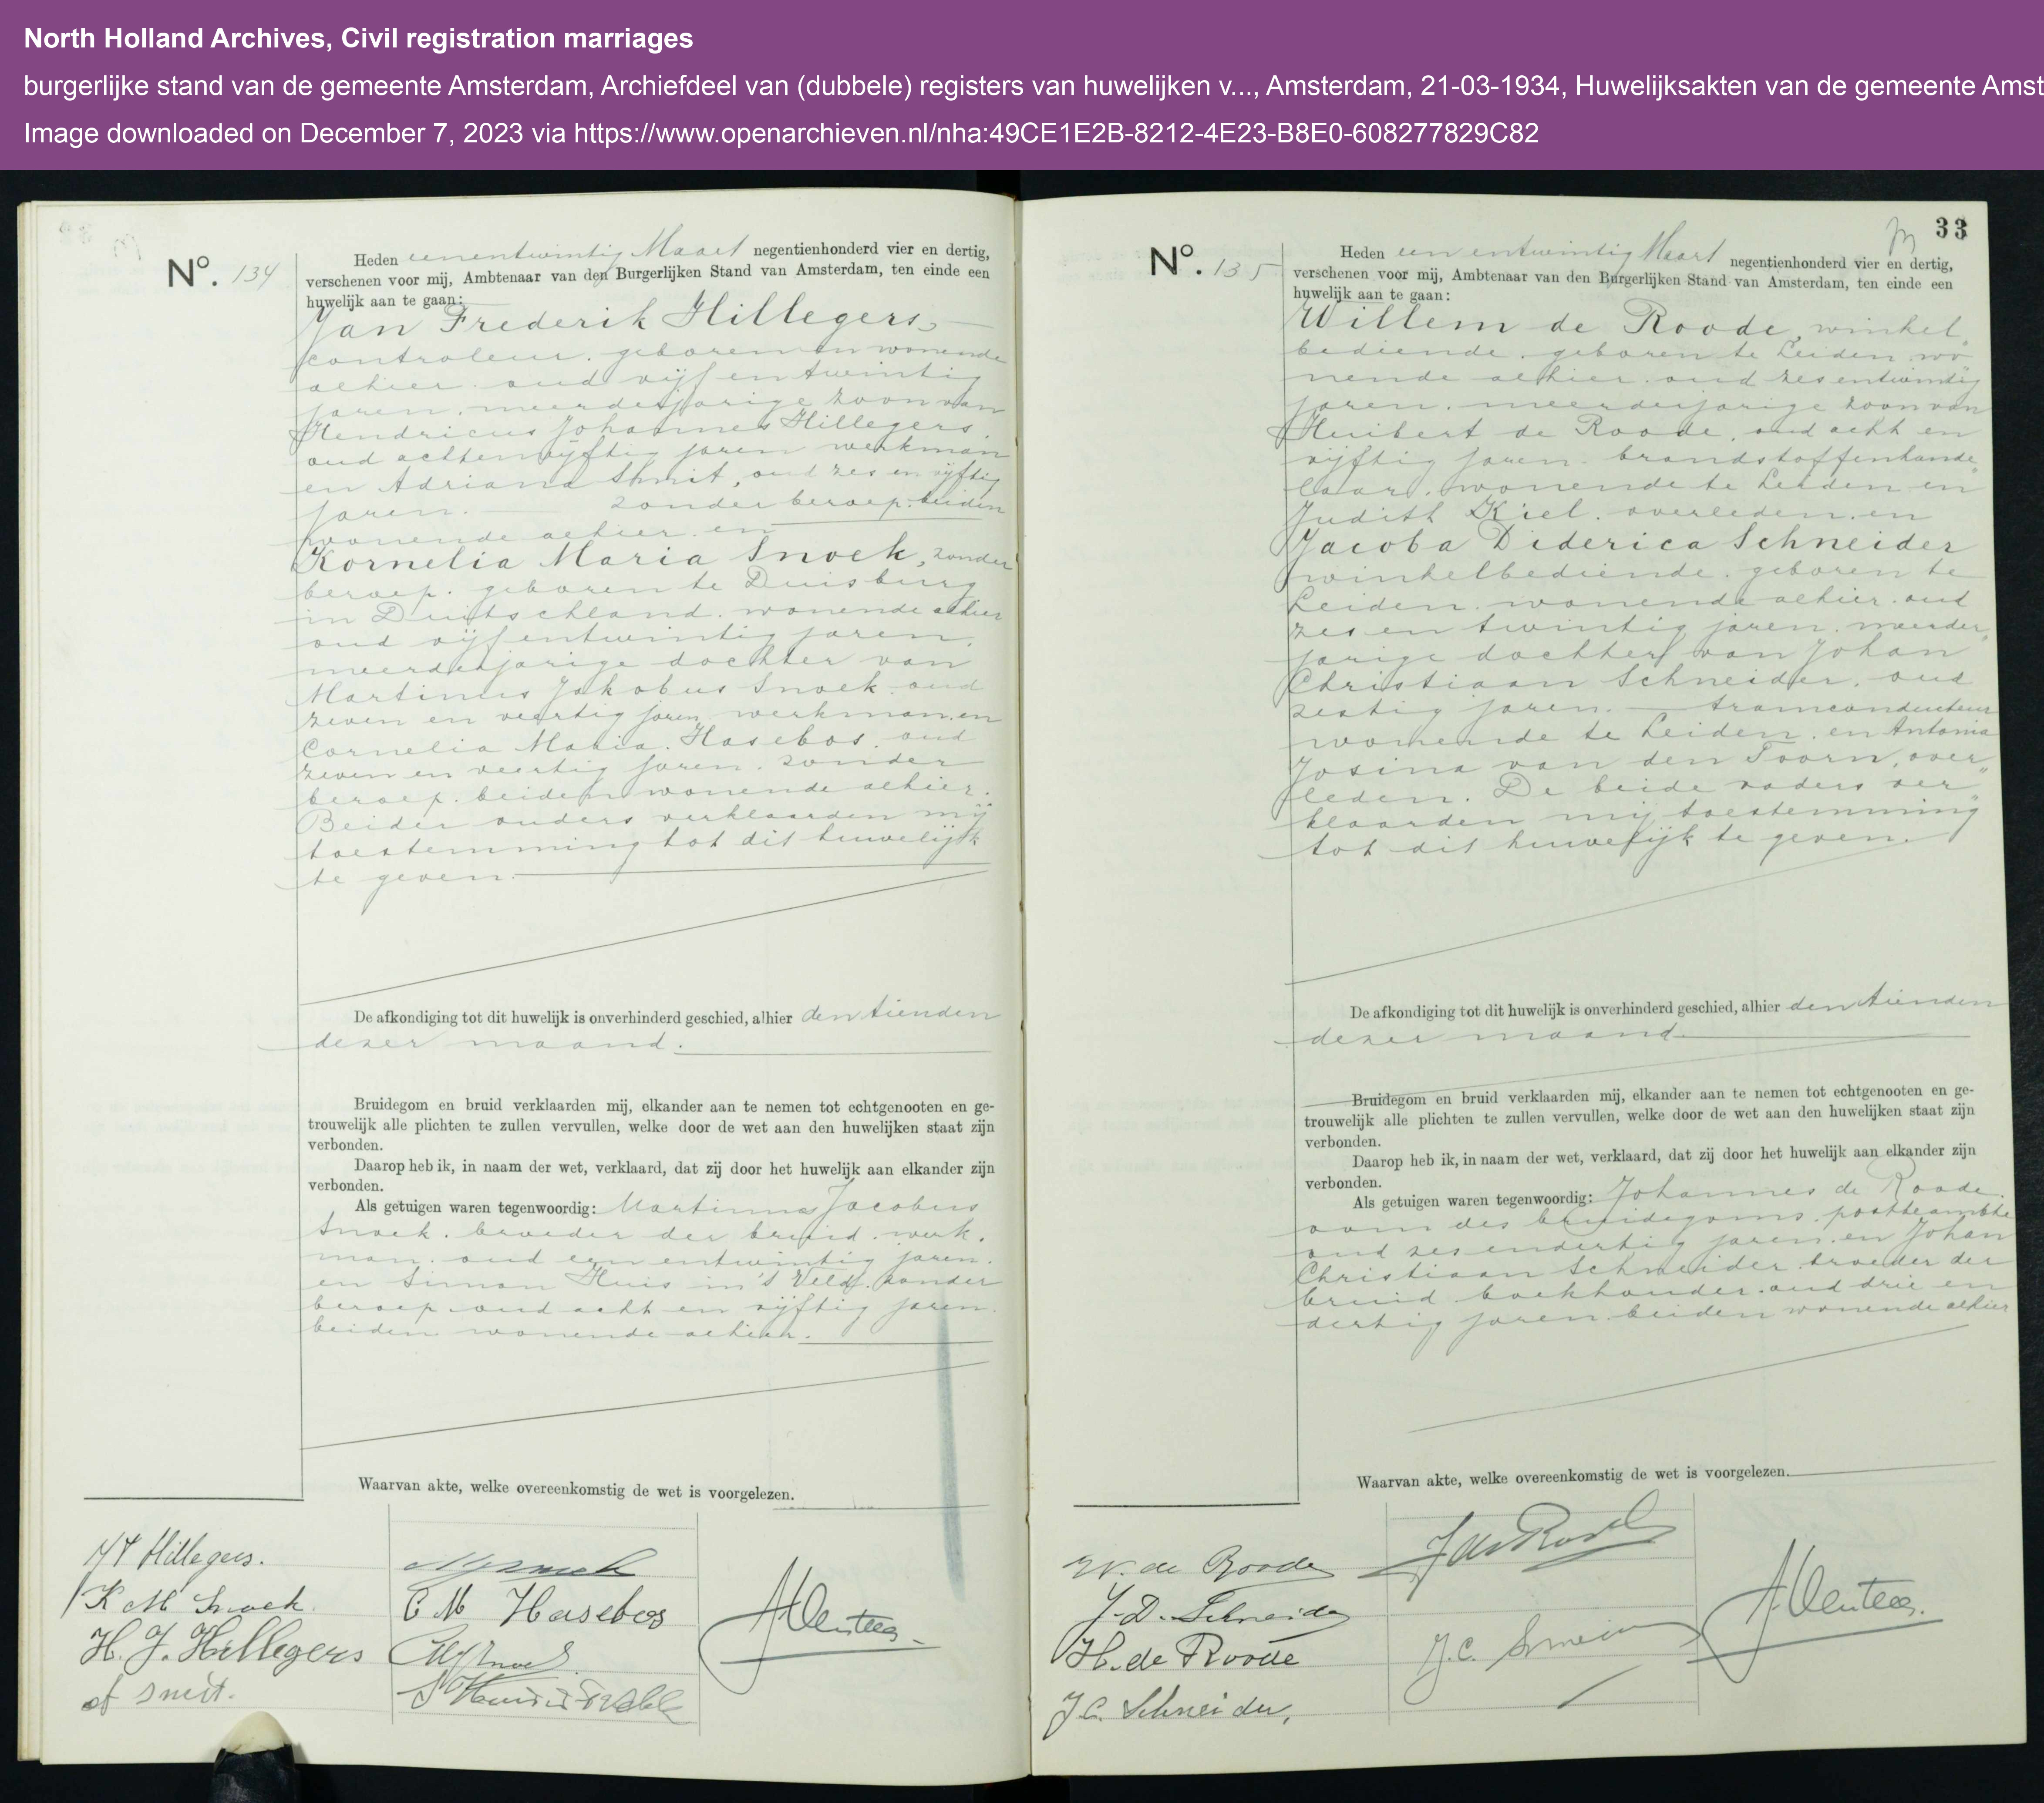 North Holland Archives, Civil registration marriages
burgerlijke stand van de gemeente Amsterdam, Archiefdeel van (dubbele) registers van huwelijken v..., Amsterdam, 21-03-1934, Huwelijksakten van de gemeente Amst
Image downloaded on December 7, 2023 via https://www.openarchieven.nl/nha:49CE1E2B-8212-4E23-B8E0-608277829C82
No. 134
Heden eenentwintig Maart negentienhonderd vier en dertig,
verschenen voor mij, Ambtenaar van den Burgerlijken Stand van Amsterdam, ten einde een
huwelijk aan te gaan:
Jan Frederik Hillegers,
controleur, geboren en wonende
alhier, oud vijf en twintig
jaren, meerderjarige zoon van
Hendricus Johannes Hillegers,
oud achtenvijftig jaren werkman
en Adriana Smit, oud zes en vijftig
jaren. zonder beroep, beiden
wonende alhier en
Kornelia Maria Snoek, zonder
beroep, geboren te Duisburg
in Duitschland, wonende alhier
oud vijf entwintig jaren,
meerderjarige dochter van
Martinus Jakobus Snoek, oud
zeven en veertig jaren, werkman en
Cornelia Maria Hasebos, oud
zeven en veertig jaren, zonder
beroep, beiden wonende alhier.
Beider ouders verklaarden mij
toestemming tot dit huwelijk
te geven.
De afkondiging tot dit huwelijk is onverhinderd geschied, alhier den tienden
dezer maand.
Bruidegom en bruid verklaarden mij, elkander aan te nemen tot echtgenooten en ge-
trouwelijk alle plichten te zullen vervullen, welke door de wet aan den huwelijken staat zijn
verbonden.
Daarop heb ik, in naam der wet, verklaard, dat zij door het huwelijk aan elkander zijn
verbonden.
Als getuigen waren tegenwoordig: Martinus Jacobus
Snoek, broeder der bruid, werk„
man, oud een entwintig jaren,
en Simon Huis in 't Veld, zonder
beroep, oud acht en vijftig jaren,
beiden wonende alhier.
Waarvan akte, welke overeenkomstig de wet is voorgelezen.
Hillegers.
K M Snoek.
H. J. Hillegers
A Smit.
C M Hasebos
33
No. 135
Heden een entwintig Maart negentienhonderd vier en dertig,
verschenen voor mij, Ambtenaar van den Burgerlijken Stand van Amsterdam, ten einde een
huwelijk aan te gaan:
Willem de Roode, winkel„
bediende, geboren te Leiden, wo„
nende alhier, oud zesentwintig
jaren, meerderjarige zoon van
Huibert de Roode, oud acht en
vijftig jaren, brandstoffenhande„
laar, wonende te Leiden en
Judith Kiel, overleden, en
Jacoba Diderica Schneider
winkelbediende, geboren te
Leiden, wonende alhier, oud
zes en twintig jaren, meerder„
jarige dochter van Johan
Christiaan Schneider, oud
zestig jaren, tramconducteur
wonende te Leiden, en Antonia
Josina van den Toorn, over„
leden. De beide vaders ver„
klaarden mij toestemming
tot dit huwelijk te geven.
De afkondiging tot dit huwelijk is onverhinderd geschied, alhier den tienden
dezer maand.
Bruidegom en bruid verklaarden mij, elkander aan te nemen tot echtgenooten en ge-
trouwelijk alle plichten te zullen vervullen, welke door de wet aan den huwelijken staat zijn
verbonden.
Daarop heb ik, in naam der wet, verklaard, dat zij door het huwelijk aan elkander zijn
verbonden.
Als getuigen waren tegenwoordig: Johannes de Roode,
oom des bruidegoms, postbeambte
oud zes endertig jaren, en Johan
Christiaan Schneider, broeder der
bruid, boekhouder, oud drie en
dertig jaren, beiden wonende alhier
Waarvan akte, welke overeenkomstig de wet is voorgelezen.
W. de Roode
J. D. Schneider
H. de Roode
J.C. Schneider,